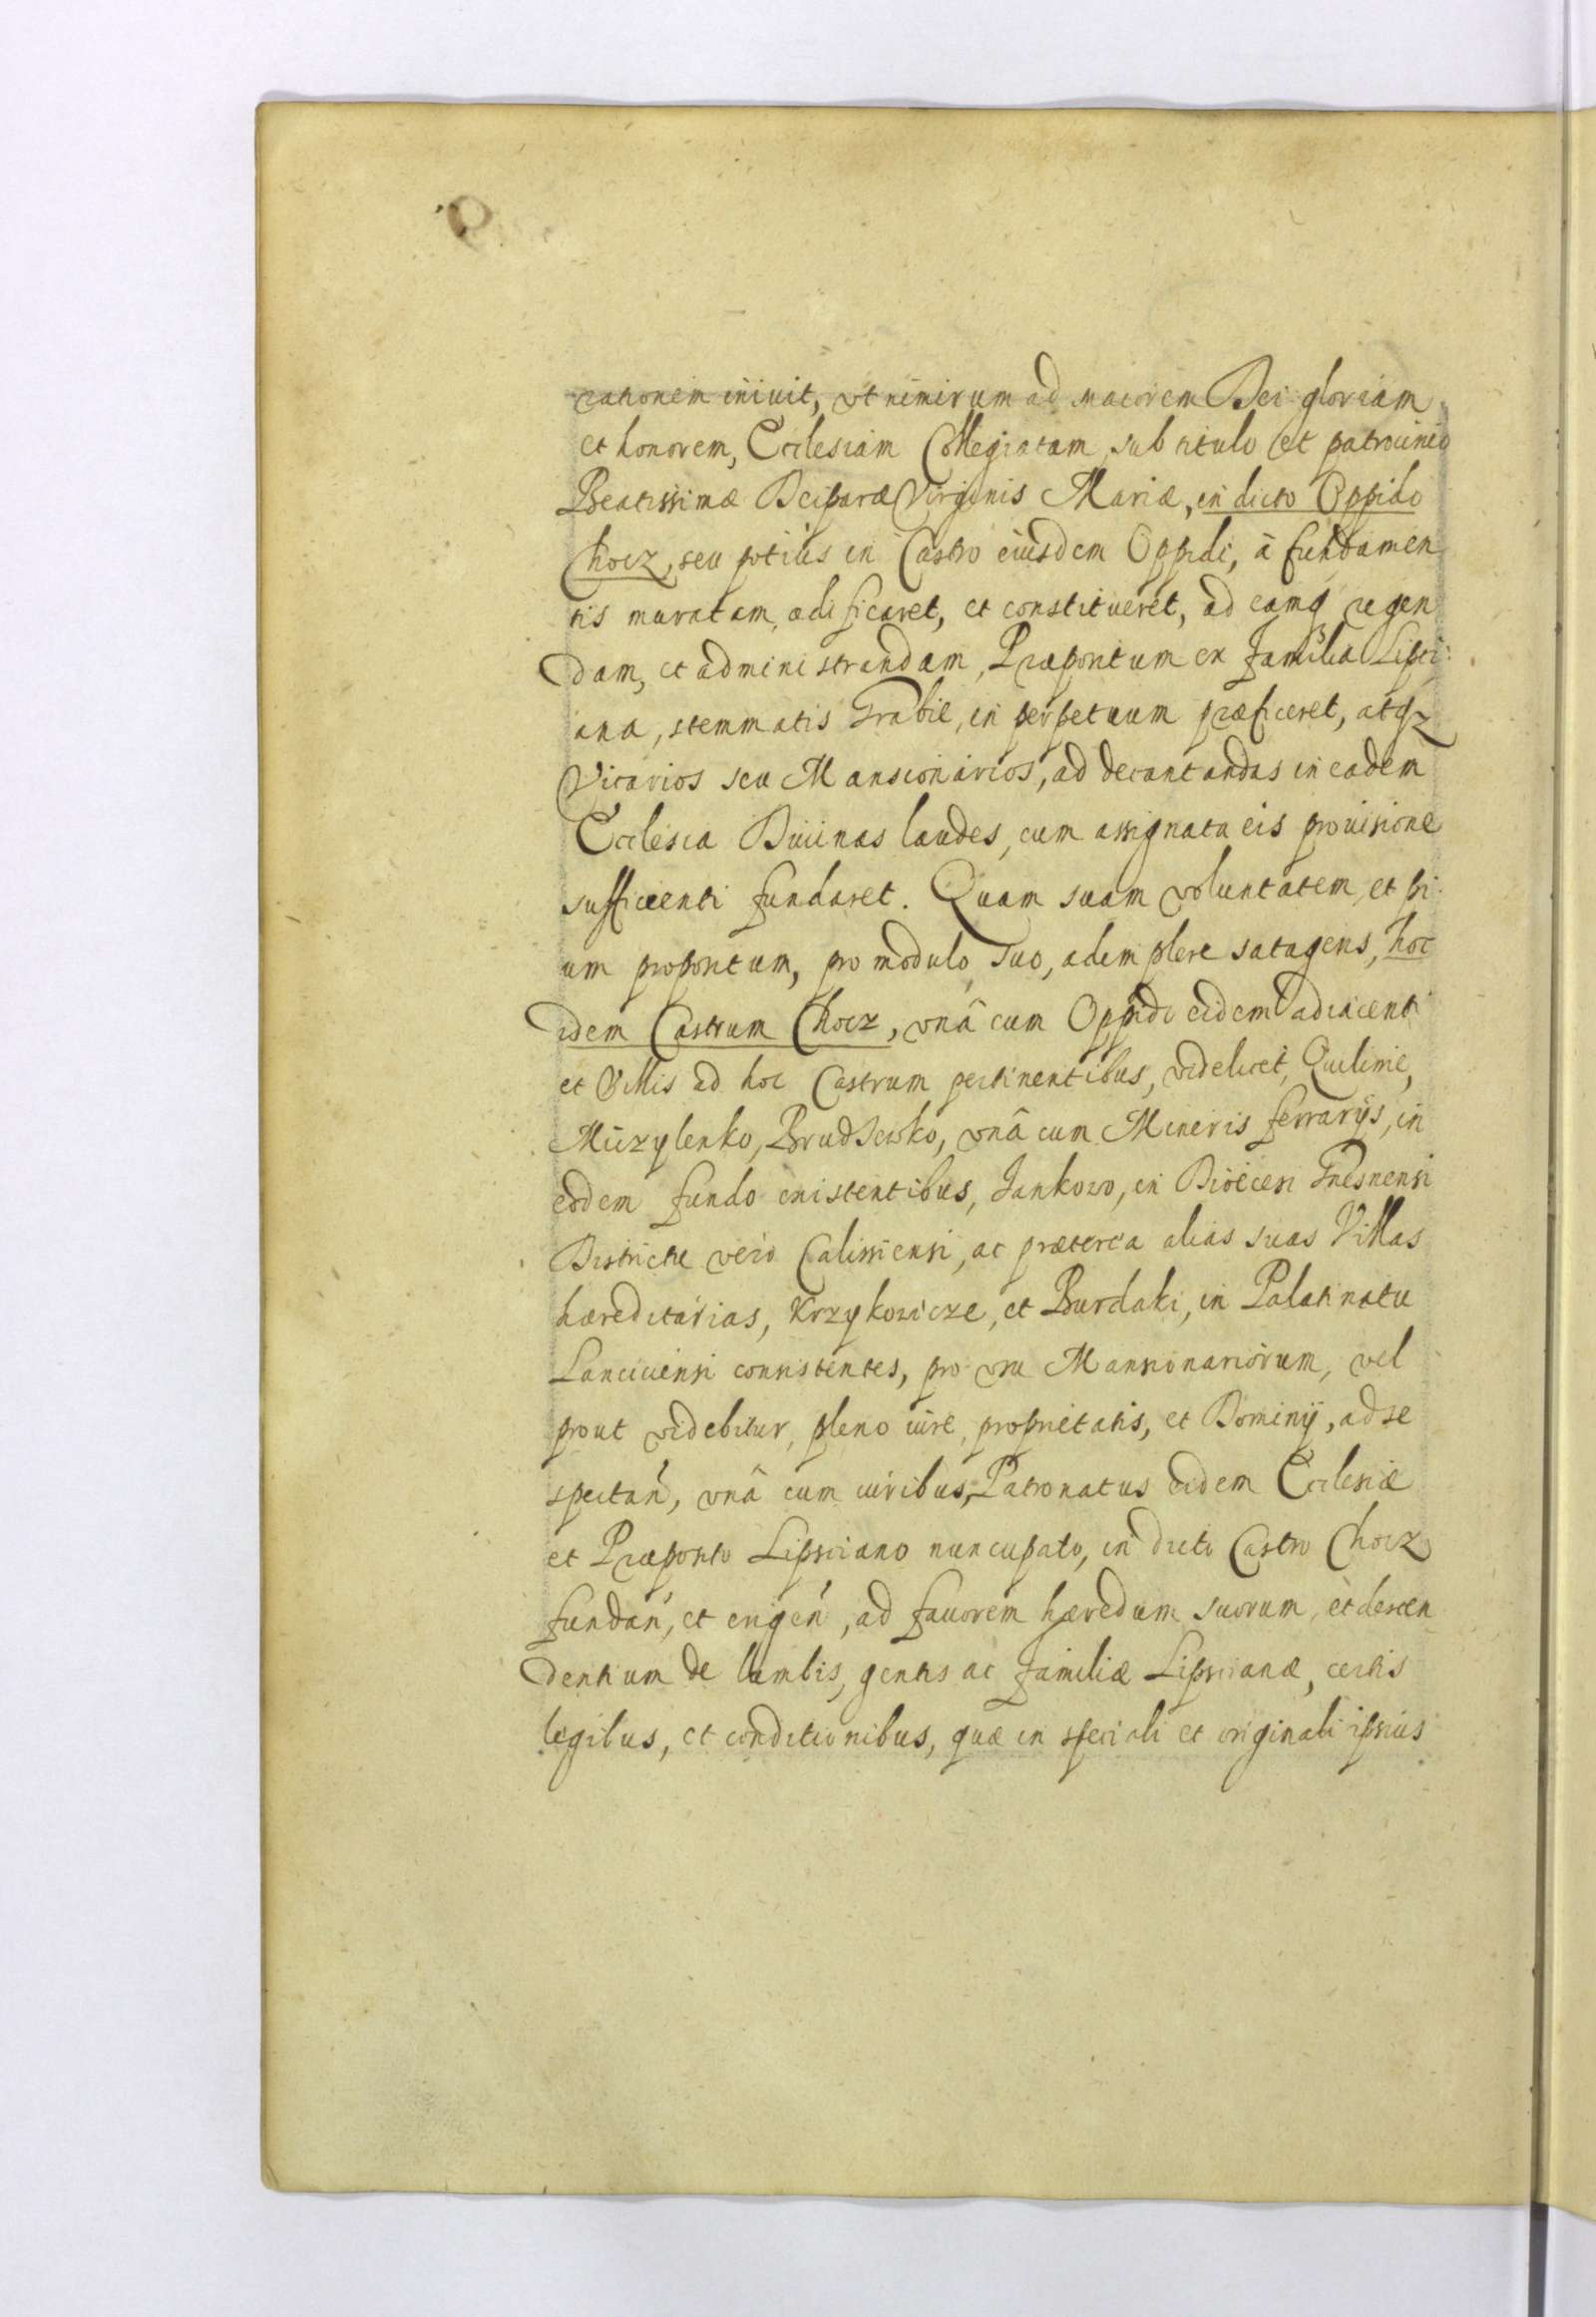 rationem iniuit, vt nimirum ad maiorem Dei gloriam
et honorem, Ecclesiam Collegiatam sub titulo et patrocinio
Beatissimæ Deiparæ Virginis Mariæ, in dicto Oppido
Chocz, seu potius in Castro eiusdem Oppidi, à fundamen
tis muratam, ædificaret, et constitueret, ad eamq regen
dam, et administrandam, Præpositum ex familia Lipsi
ana, stemmatis Grabie, in perpetuum præficeret, atqz
Vicarios seu Mansionarios, ad decantandas in eadem
Ecclesia Diuinas laudes, cum assignata eis prouisione
sufficienti fundaret. Quam suam voluntatem et pi
um propositum, pro modulo suo, adimplere satagens, hoc
idem Castrum Chocz, vnâ cum Oppido eidem adiacenti
et Villis ad hoc Castrum pertinentibus, videlicet, Quilinie,
Nuzylenko, Brudzewko, vnâ cum Mineris ferrarijs, in
eodem fundo existentibus, Jankowo, in Diœcesi Gnesnensi
Districtu verò Calissiensi, ac præterea alias suas Villas
hæreditarias, Krzykowicze, et Burdaki, in Palatinatu
Lanciciensi consistentes, pro vsu Mansionariorum, vel
prout videbitur, pleno iure, proprietatis, et Dominij, ad se
spectan, vnâ cum iuribus, Patronatus eidem Ecclesiæ
et Præposito Lipsciano nuncupato, in dicto Castro Chocz
fundan, et erigen, ad fauorem hæredum suorum, et descen
dentium de lumbis, gentis ac familiæ Lipscianæ, certis
legibus, et conditionibus, quæ in speciali et originali ipsius